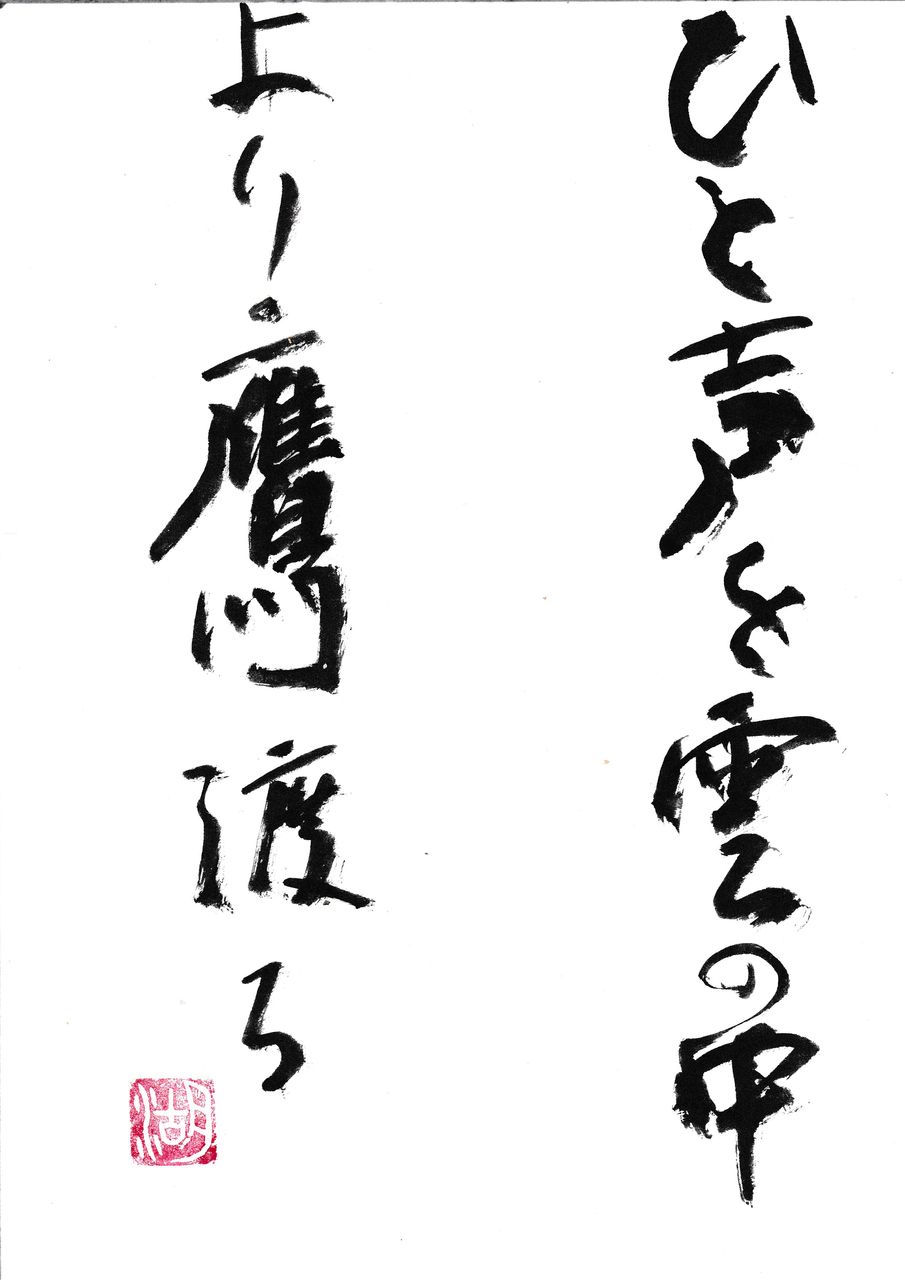 ひと声を雲の中
より鷹渡る
湖